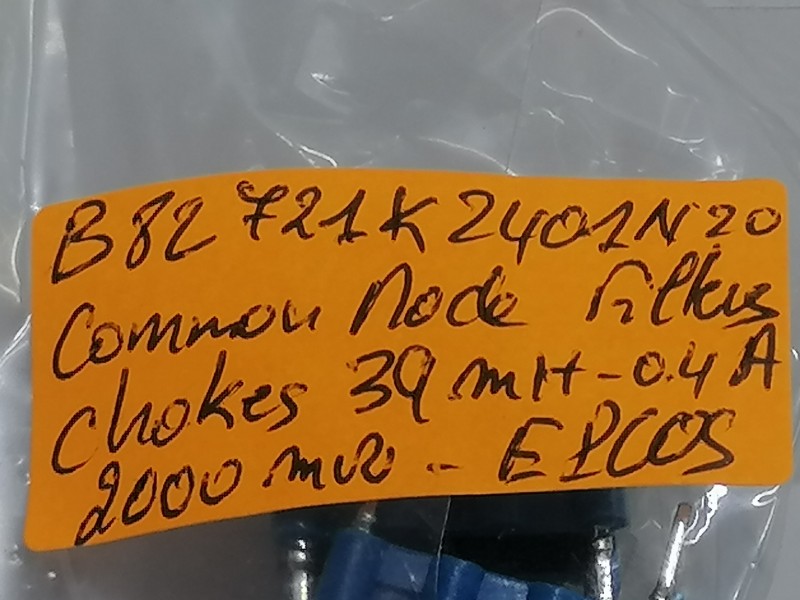 B82721K2401N20
Common Mode Filters
Chokes 39 mH - 0.4 A
2000 mΩ - EPCOS